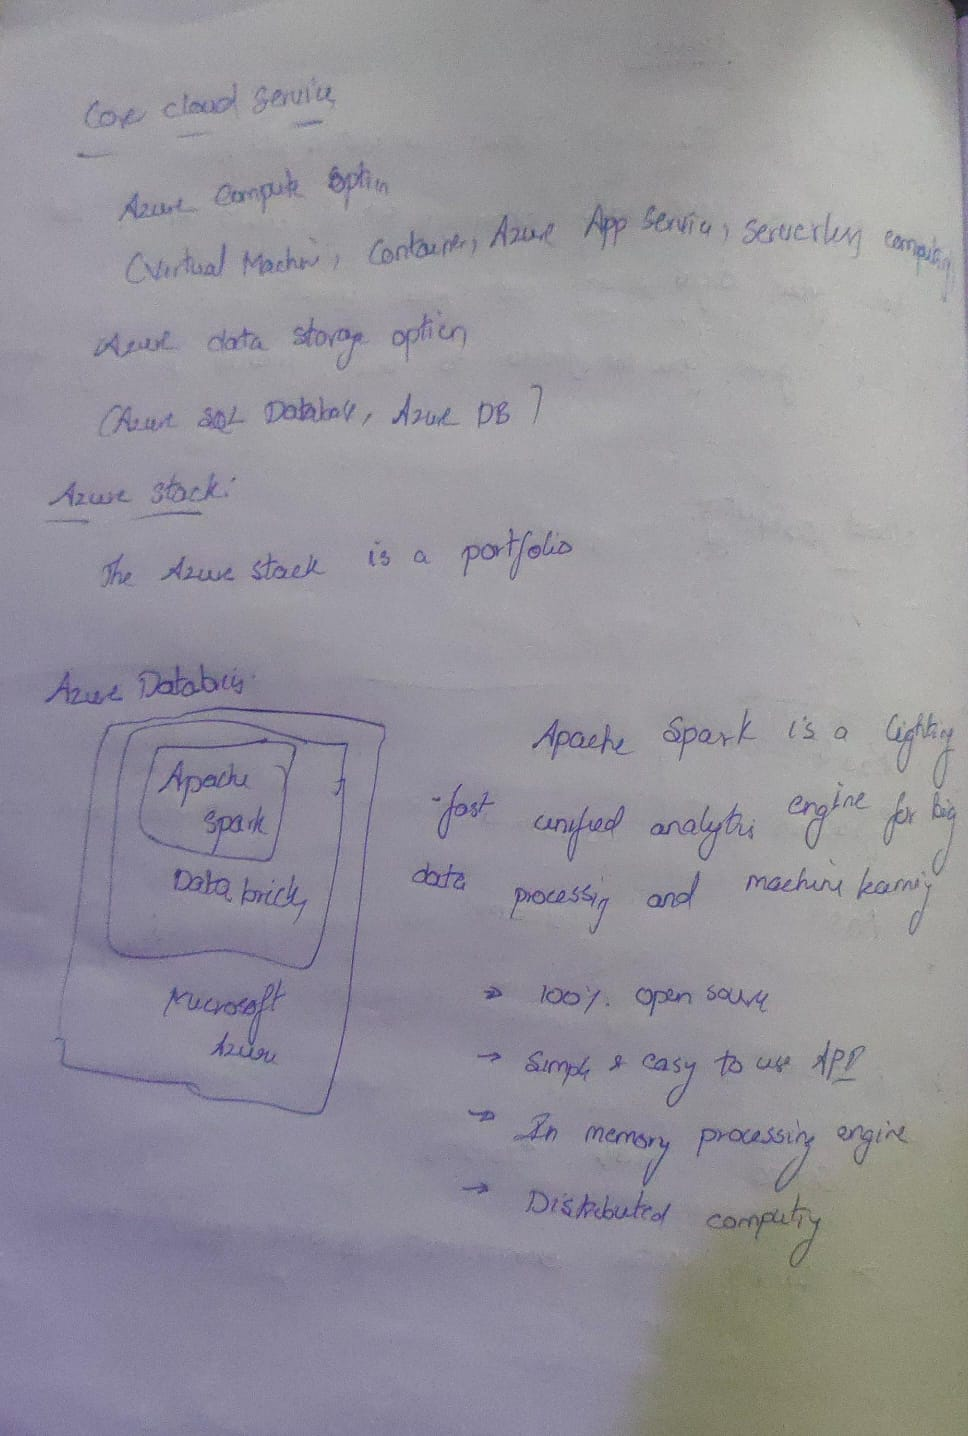 Core cloud service
Azure Compute Option
(Virtual Machine, Container, Azure App Service, Serverless computing
Azure data storage option
(Azure SQL Database, Azure DB)
Azure stack:
The Azure stack is a portfolio
Azure Databricks
Apache
Spark
Data bricks
Microsoft
Azure
Apache Spark is a lighting
-fast unified analytics engine for big
data processing and machine learning
→ 100% open source
→ Simple & easy to use API
→ In memory processing engine
→ Distributed computing